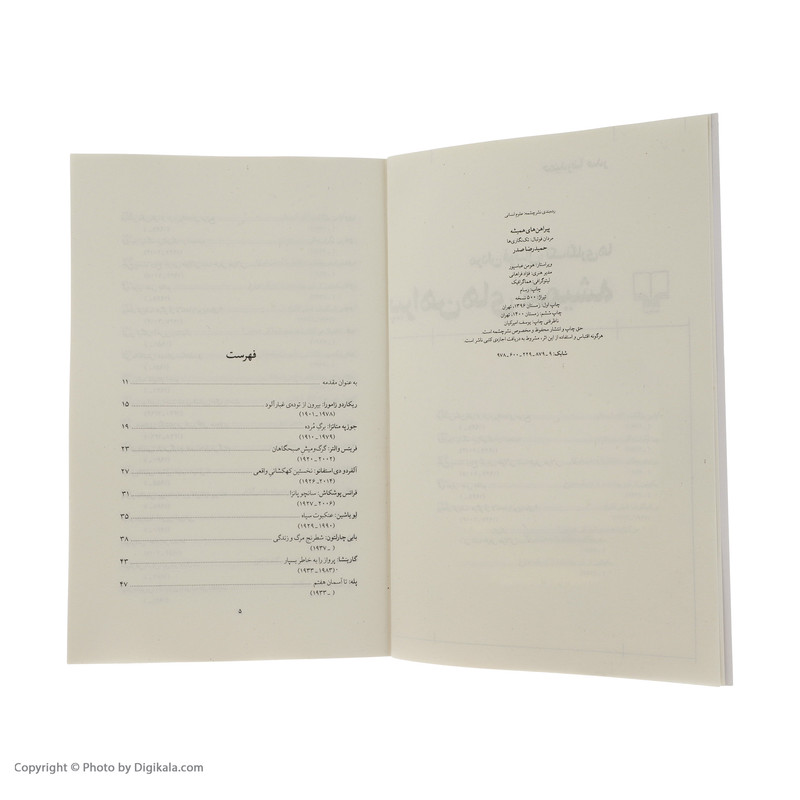 رده‌بندی نشرچشمه: علوم انسانی
پیراهن‌های همیشه
مردان فوتبال: تک‌نگاری‌ها
حمیدرضا صدر
ویراستار: هومن عباسپور
مدیر هنری: فؤاد فراهانی
لیتوگرافی: هماگرافیک
چاپ: رسام
تیراژ: ۵۰۰ نسخه
چاپ اول: زمستان ۱۳۹۶، تهران
چاپ ششم: زمستان ۱۴۰۰، تهران
ناظر فنی چاپ: یوسف امیرکیان
حق چاپ و انتشار محفوظ و مخصوص نشرچشمه است.
هرگونه اقتباس و استفاده از این اثر، مشروط به دریافت اجازه‌ی کتبی ناشر است.
شابک: ۹ـ۸۷۹ـ۲۲۹ـ۶۰۰ـ۹۷۸
فهرست
به عنوان مقدمه ۱۱
ریکاردو زامورا: بیرون از توده‌ی غبارآلود ۱۵
(۱۹۷۸ـ۱۹۰۱)
جوزپه مئاتزا: برگ مُرده ۱۹
(۱۹۷۹ـ۱۹۱۰)
فریتس والتر: گرگ‌ومیش صبحگاهان ۲۳
(۲۰۰۲ـ۱۹۲۰)
آلفردو دی استفانو: نخستین کهکشانی واقعی ۲۷
(۲۰۱۴ـ۱۹۲۶)
فرانس پوشکاش: سانچو پانزا ۳۱
(۲۰۰۶ـ۱۹۲۷)
لِو یاشین: عنکبوت سیاه ۳۵
(۱۹۹۰ـ۱۹۲۹)
بابی چارلتون: شطرنج مرگ و زندگی ۳۸
( ـ۱۹۳۷)
گارینشا: پرواز را به خاطر بسپار ۴۳
(۱۹۸۳ـ۱۹۳۳)
پله: تا آسمان هفتم ۴۷
( ـ۱۹۳۳)
۵
Copyright © Photo by Digikala.com